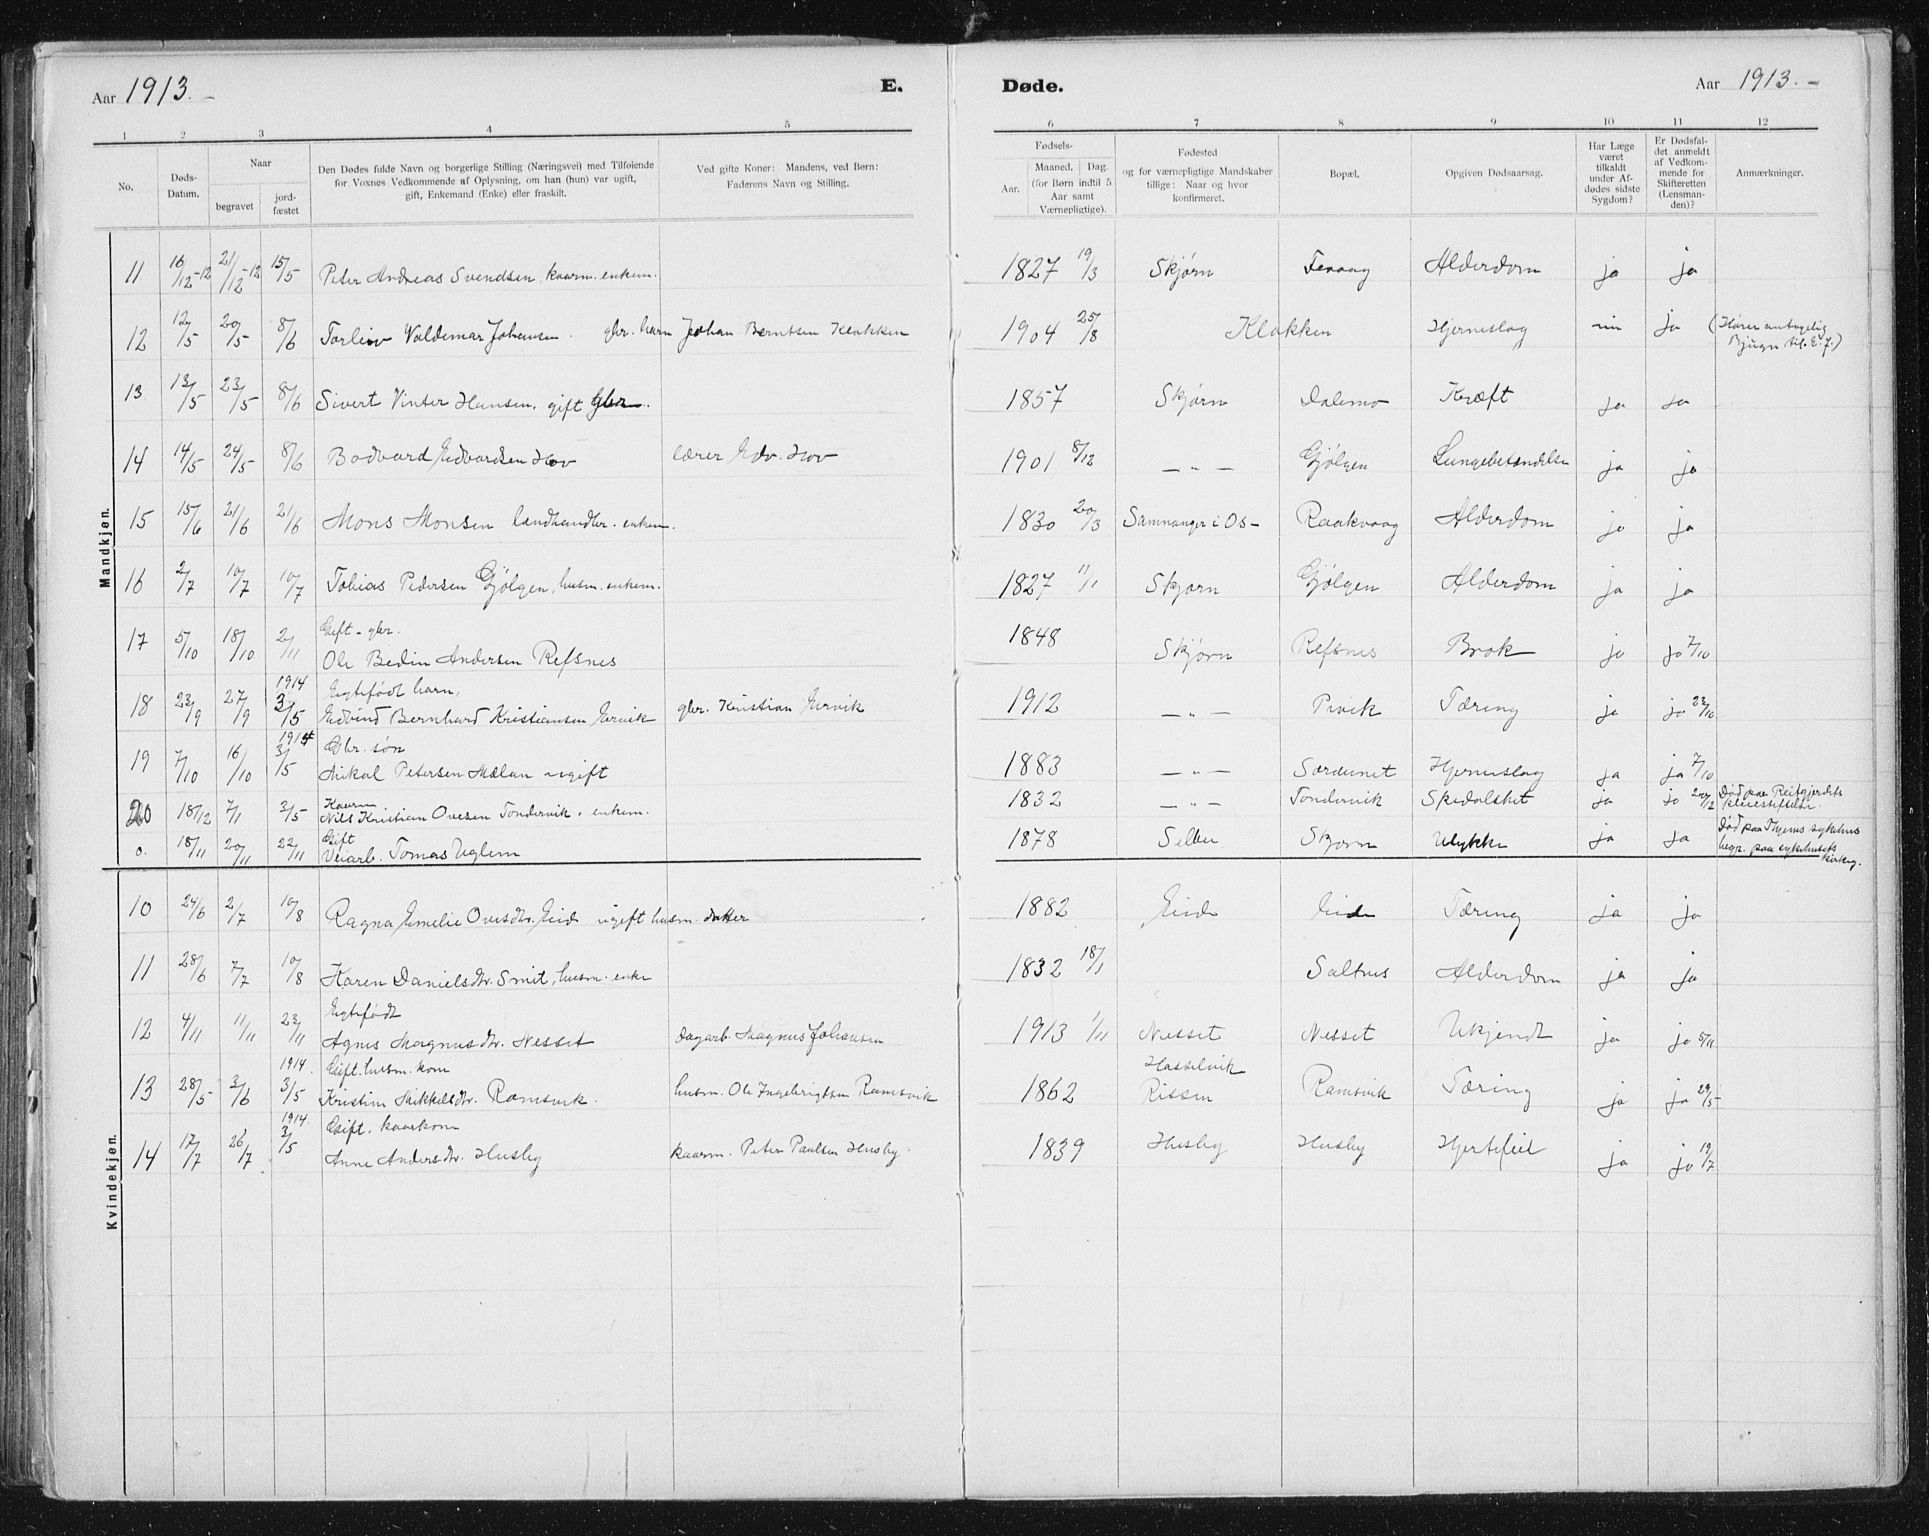 Aar 1913. –
E.
Døde.
Aar 1913. –
1 2 3 4 5 6 7 8 9 10 11 12
No.
Døds-
Datum.
Naar
begravet
jord-
fæstet
Den Dødes fulde Navn og borgerlige Stilling (Næringsvei) med Tilføiende
for Voxnes Vedkommende af Oplysning, om han (hun) var ugift,
gift, Enkemand (Enke) eller fraskilt.
Ved gifte Koner: Mandens, ved Børn:
Faderens Navn og Stilling.
Fødsels-
Aar.
Maaned. Dag.
(for Børn indtil 5
Aar samt
Værnepligtige).
Fødested
og for værnepligtige Mandskaber
tillige: Naar og hvor
konfirmeret.
Bopæl.
Opgiven Dødsaarsag.
Har Læge
været
tilkaldt
under Af-
dødes sidste
Sygdom?
Er Dødsfal-
det anmeldt
af Vedkom-
mende for
Skifteretten
(Lensman-
den)?
Anmærkninger.
Mandkjøn.
11 16/12-12 21/12-12 15/5 Peter Andreas Svendsen, kaarm. enkem. 1827 19/3 Skjørn Fevaag Alderdom ja ja
12 12/5 20/5 8/6 Torleiv Valdemar Johansen. gbr. barn Johan Berntsen Klakken 1904 25/8 Klakken Hjerneslag nei ja (Hører
Bjugn til. E. J.)
13 13/5 23/5 8/6 Sivert Vinter Hansen, gift gbr. 1857 Skjørn Dalemo Kræft ja ja
14 14/5 24/5 8/6 Bodvard Edvardsen Hov lærer Edv. Hov 1901 8/12 — „ — Gjølgen Lungebetændelse ja ja
15 15/6 21/6 21/6 Mons Monsen landhandler. enkem. 1830 20/3 Samnanger i Os – Raakvaag Alderdom ja ja
16 2/7 10/7 10/7 Tobias Pedersen Gjølgen, husm. enkem. 1827 11/1 Skjørn Gjølgen Alderdom ja ja
Gift – gbr.
17 5/10 18/10 2/11 Ole Bedin Andersen Refsnes 1848 Skjørn Refsnes Brok ja ja 7/10
1914 Egtefødt barn,
18 23/9 27/9 3/5 Edvind Bernhard Kristiansen Ervik gbr. Kristian Ervik 1912 — „ — Tæring ja ja 23/10
1914 Gbr. søn
19 7/10 16/10 3/5 Mikal Petersen Mælan ugift 1883 — „ — Hjerneslag ja ja 7/10
Kaarm
20 18/12 7/1 3/5 Nils Kristian Ovesen Tondervik. enkem. 1832 — „ — Tondervik Spedalsket ja ja 20/12 Død paa Reitgjerdets
pleiestiftelse
Gift
0. 18/11 20/11 22/11 Veiarb. Tomas Uglem 1878 Selbu Skjørn Ulykke ja ja Død paa sykehus
begr. paa sykehusets
kirkeg.
Kvindekjøn.
10 24/6 2/7 10/8 Ragna Emelie Ovesdtr. Eid ugift husm. datter 1882 Eide Eide Tæring ja ja
11 28/6 7/7 10/8 Karen Danielsdtr. Smit, husm. enke 1832 18/1 Saltnes Alderdom ja ja
Egtefødt
12 4/11 11/11 23/11 Agnes Magnusdtr. Nesset Dagarb. Magnus Johansen 1913 1/11 Nesset Nesset Ukjendt ja ja 5/11
1914. Gift. husm. kone Hasselvik
13 28/5 3/6 3/5 Kristine Mikkelsdtr. Ramsvik. husm. Ole Ingebrigtsen Ramsvik 1862 Rissen Ramsvik Tæring ja ja 29/5
1914. Gift. kaarkone
14 17/7 26/7 3/5 Anne Andersdtr. Husby kaarm. Peter Paulsen Husby 1839 Husby Husby Hjertefeil ja ja 19/7